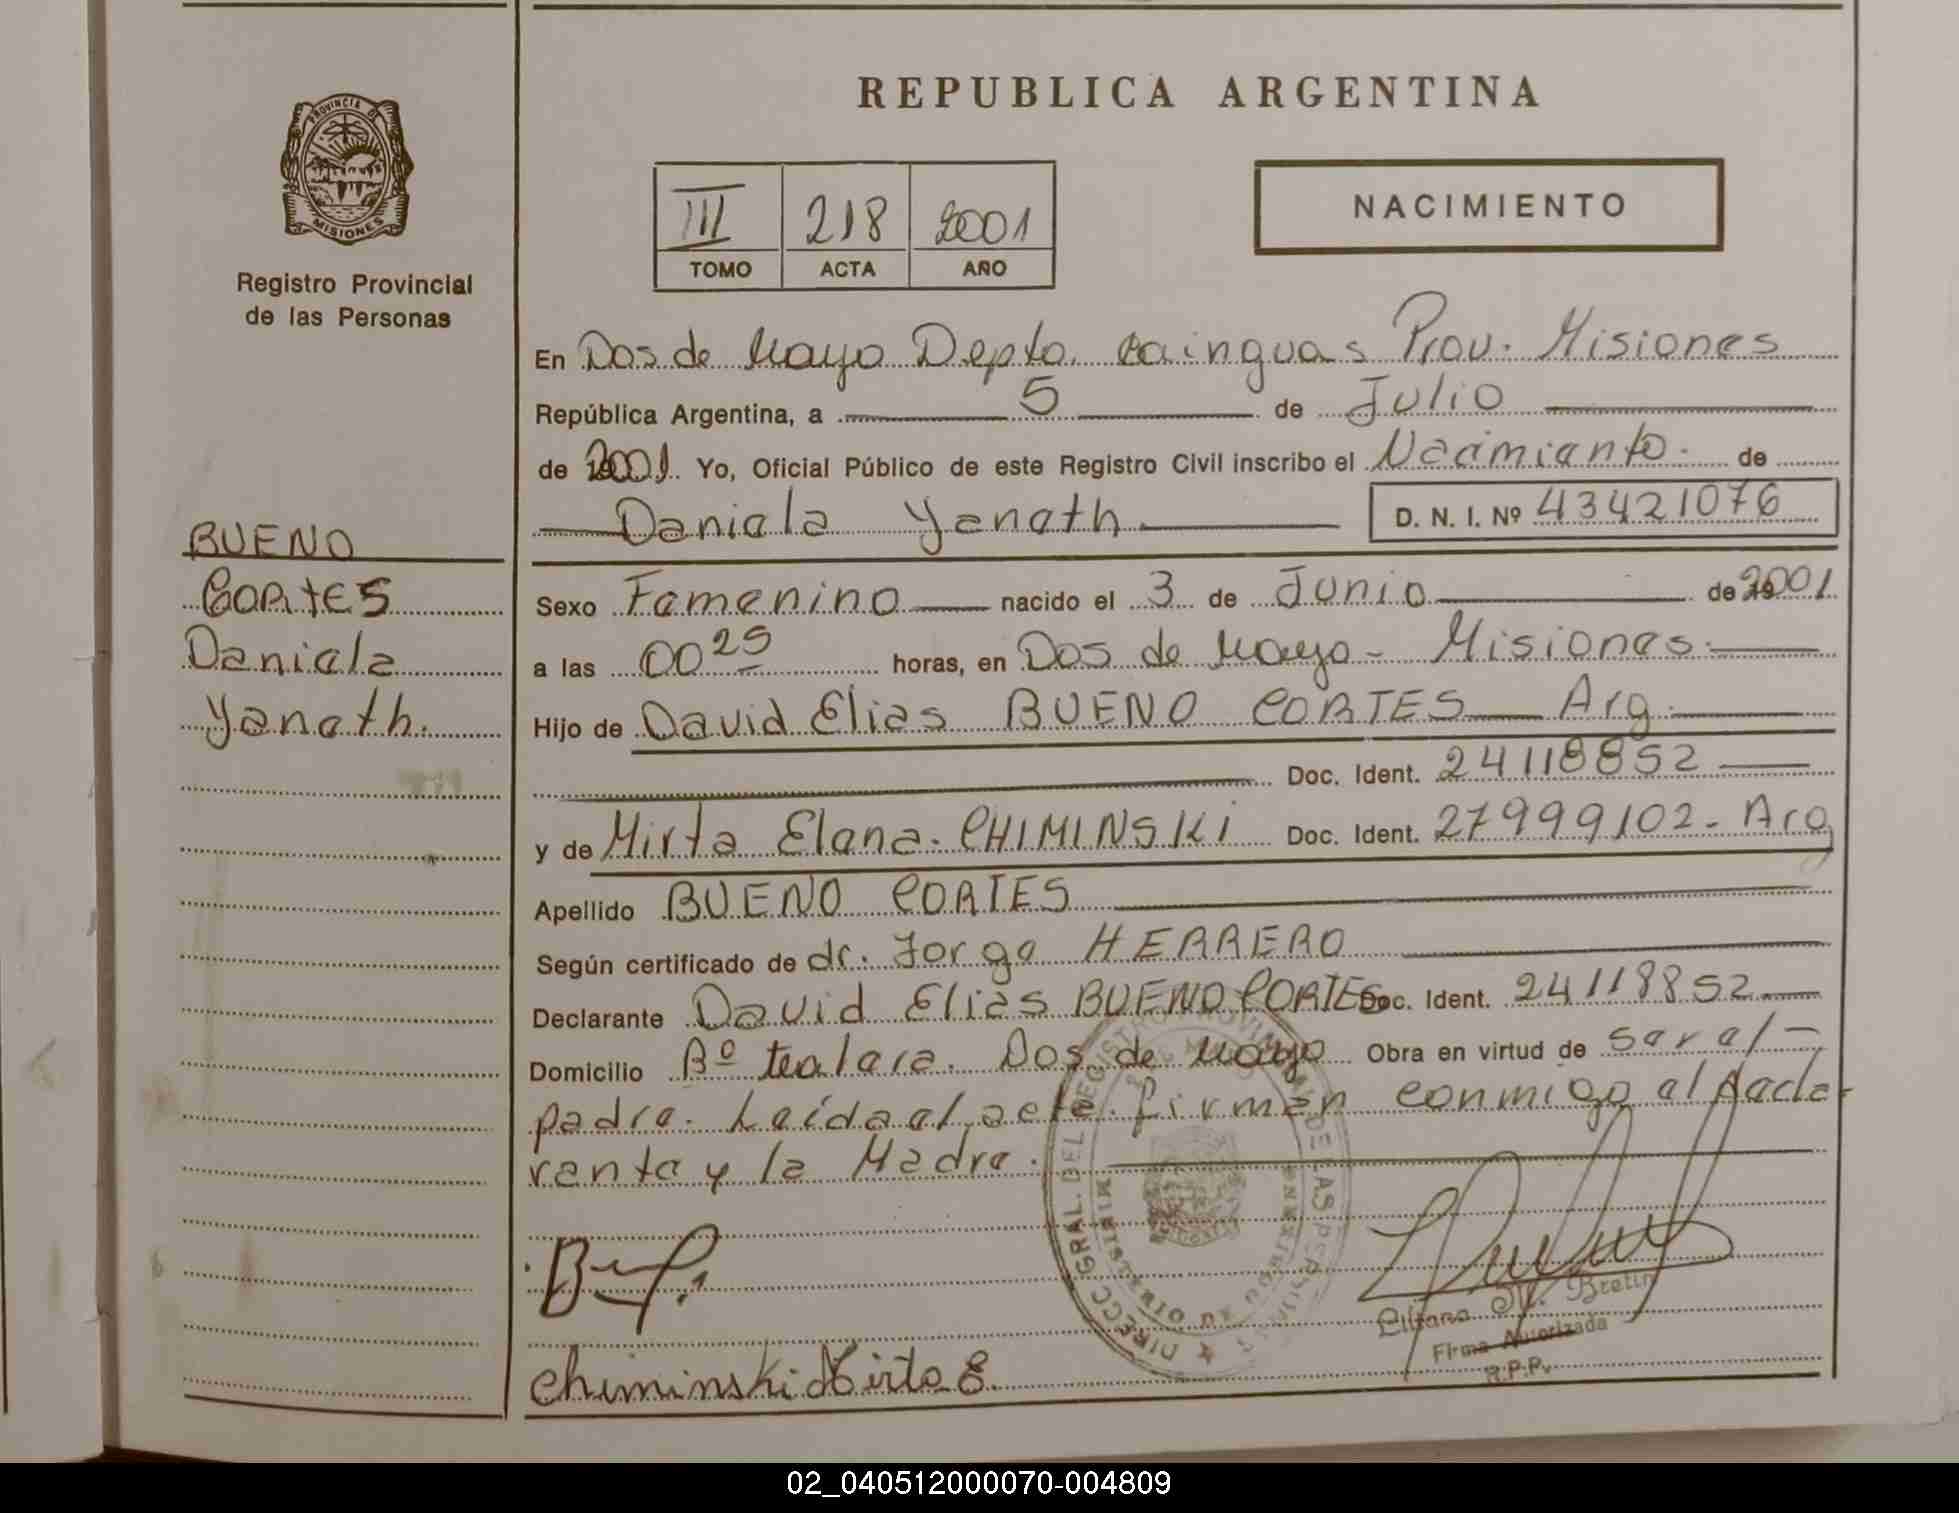 PROVINCIA DE
MISIONES
Registro Provincial
de las Personas
BUENO
CORTES
Daniela
Yaneth.
REPUBLICA ARGENTINA
III 218 2001
TOMO ACTA AÑO
NACIMIENTO
En Dos de Mayo Depto. Cainguas Prov. Misiones
República Argentina, a 5 de Julio
de 2001. Yo, Oficial Público de este Registro Civil inscribo el Nacimiento. de
Daniela Yaneth D. N. I. Nº 43421076
Sexo Femenino nacido el 3 de Junio de 2001
a las 00 25 horas, en Dos de Mayo - Misiones.
Hijo de David Elias BUENO CORTES Arg.
Doc. Ident. 24118852
y de Mirta Elena. CHIMINSKI Doc. Ident. 27999102 - Arg
Apellido BUENO CORTES
Según certificado de dr. Jorge HERRERO
Declarante David Elias BUENO CORTES Doc. Ident. 24118852
Domicilio Bº tealera. Dos de Mayo Obra en virtud de ser el
padre. Leída el acta. firman conmigo el decla-
rente y la Madre.
DIRECC. GRAL. DEL REGISTRO PROVINCIAL DE LAS PERSONAS
Chiminski Mirta E.
Liliana M. Bretin
Firma Autorizada
R.P.P.
02_040512000070-004809